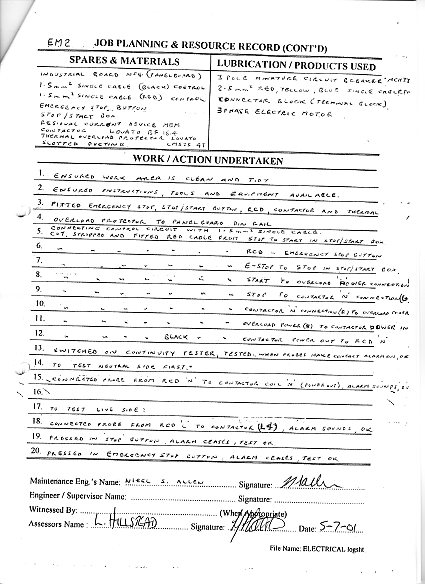 EM2 JOB PLANNING & RESOURCE RECORD (CONT'D)
SPARES & MATERIALS
INDUSTRIAL BOARD MFG (PANELBOARD)
1.5mm² SINGLE CABLE (BLACK) CONTROL
1.5mm² SINGLE CABLE (RED) CONTROL
EMERGENCY STOP BUTTON
STOP / START BOX
RESIDUAL CURRENT DEVICE MEM
CONTACTOR LOVATO BF 16.4
THERMAL OVERLOAD PROTECTOR LOVATO
SLOTTED DUCTING
LUBRICATION / PRODUCTS USED
3 POLE MINIATURE CIRCUIT BREAKER
2.5mm² RED, YELLOW, BLUE SINGLE CABLE
CONNECTOR BLOCK (TERMINAL BLOCK)
3 PHASE ELECTRIC MOTOR
WORK / ACTION UNDERTAKEN
1. ENSURED WORK AREA IS CLEAN AND TIDY
2. ENSURED INSTRUCTIONS, TOOLS AND EQUIPMENT AVAILABLE.
3. FITTED EMERGENCY STOP, STOP/START BUTTON, RCD, CONTACTOR AND THERMAL
4. OVERLOAD PROTECTOR TO PANELBOARD DIN RAIL
5. CONNECTING CONTROL CIRCUIT WITH 1.5mm² SINGLE CABLE.
CUT, STRIPPED AND FITTED RED CABLE FROM STOP TO START IN STOP/START BOX
6. " " " " " RCD - EMERGENCY STOP BUTTON
7. " " " " " E-STOP TO STOP IN STOP/START BOX
8. " " " " " START TO OVERLOAD POWER CONNECTION
9. " " " " " STOP TO CONTACTOR 'N' CONNECTION
10. " " " " " CONTACTOR N CONNECTION TO OVERLOAD POWER
11. " " " " " OVERLOAD POWER (B) TO CONTACTOR POWER IN
12. " " " BLACK " " CONTACTOR POWER OUT TO RCD 'N'
13. SWITCHED ON CONTINUITY TESTER, TESTED. WHEN PROBES MAKE CONTACT ALARM ON, OK
14. TO TEST NEUTRAL SIDE FIRST:-
15. CONNECTED PROBE FROM RCD 'N' TO CONTACTOR COIL 'N', ALARM SOUNDS, OK
16.
17. TO TEST LIVE SIDE:
18. CONNECTED PROBE FROM RCD 'L' TO CONTACTOR (L4), ALARM SOUNDS, OK
19. PRESSED IN STOP BUTTON, ALARM CEASES, TEST OK
20. PRESSED IN EMERGENCY STOP BUTTON, ALARM CEASES, TEST OK
Maintenance Eng.'s Name: NIGEL S. ALLEN Signature:
Engineer / Supervisor Name: Signature:
Witnessed By: (When Appropriate)
Assessors Name: L. HILLSTEAD Signature: Date: 5-7-01
File Name: ELECTRICAL logsht